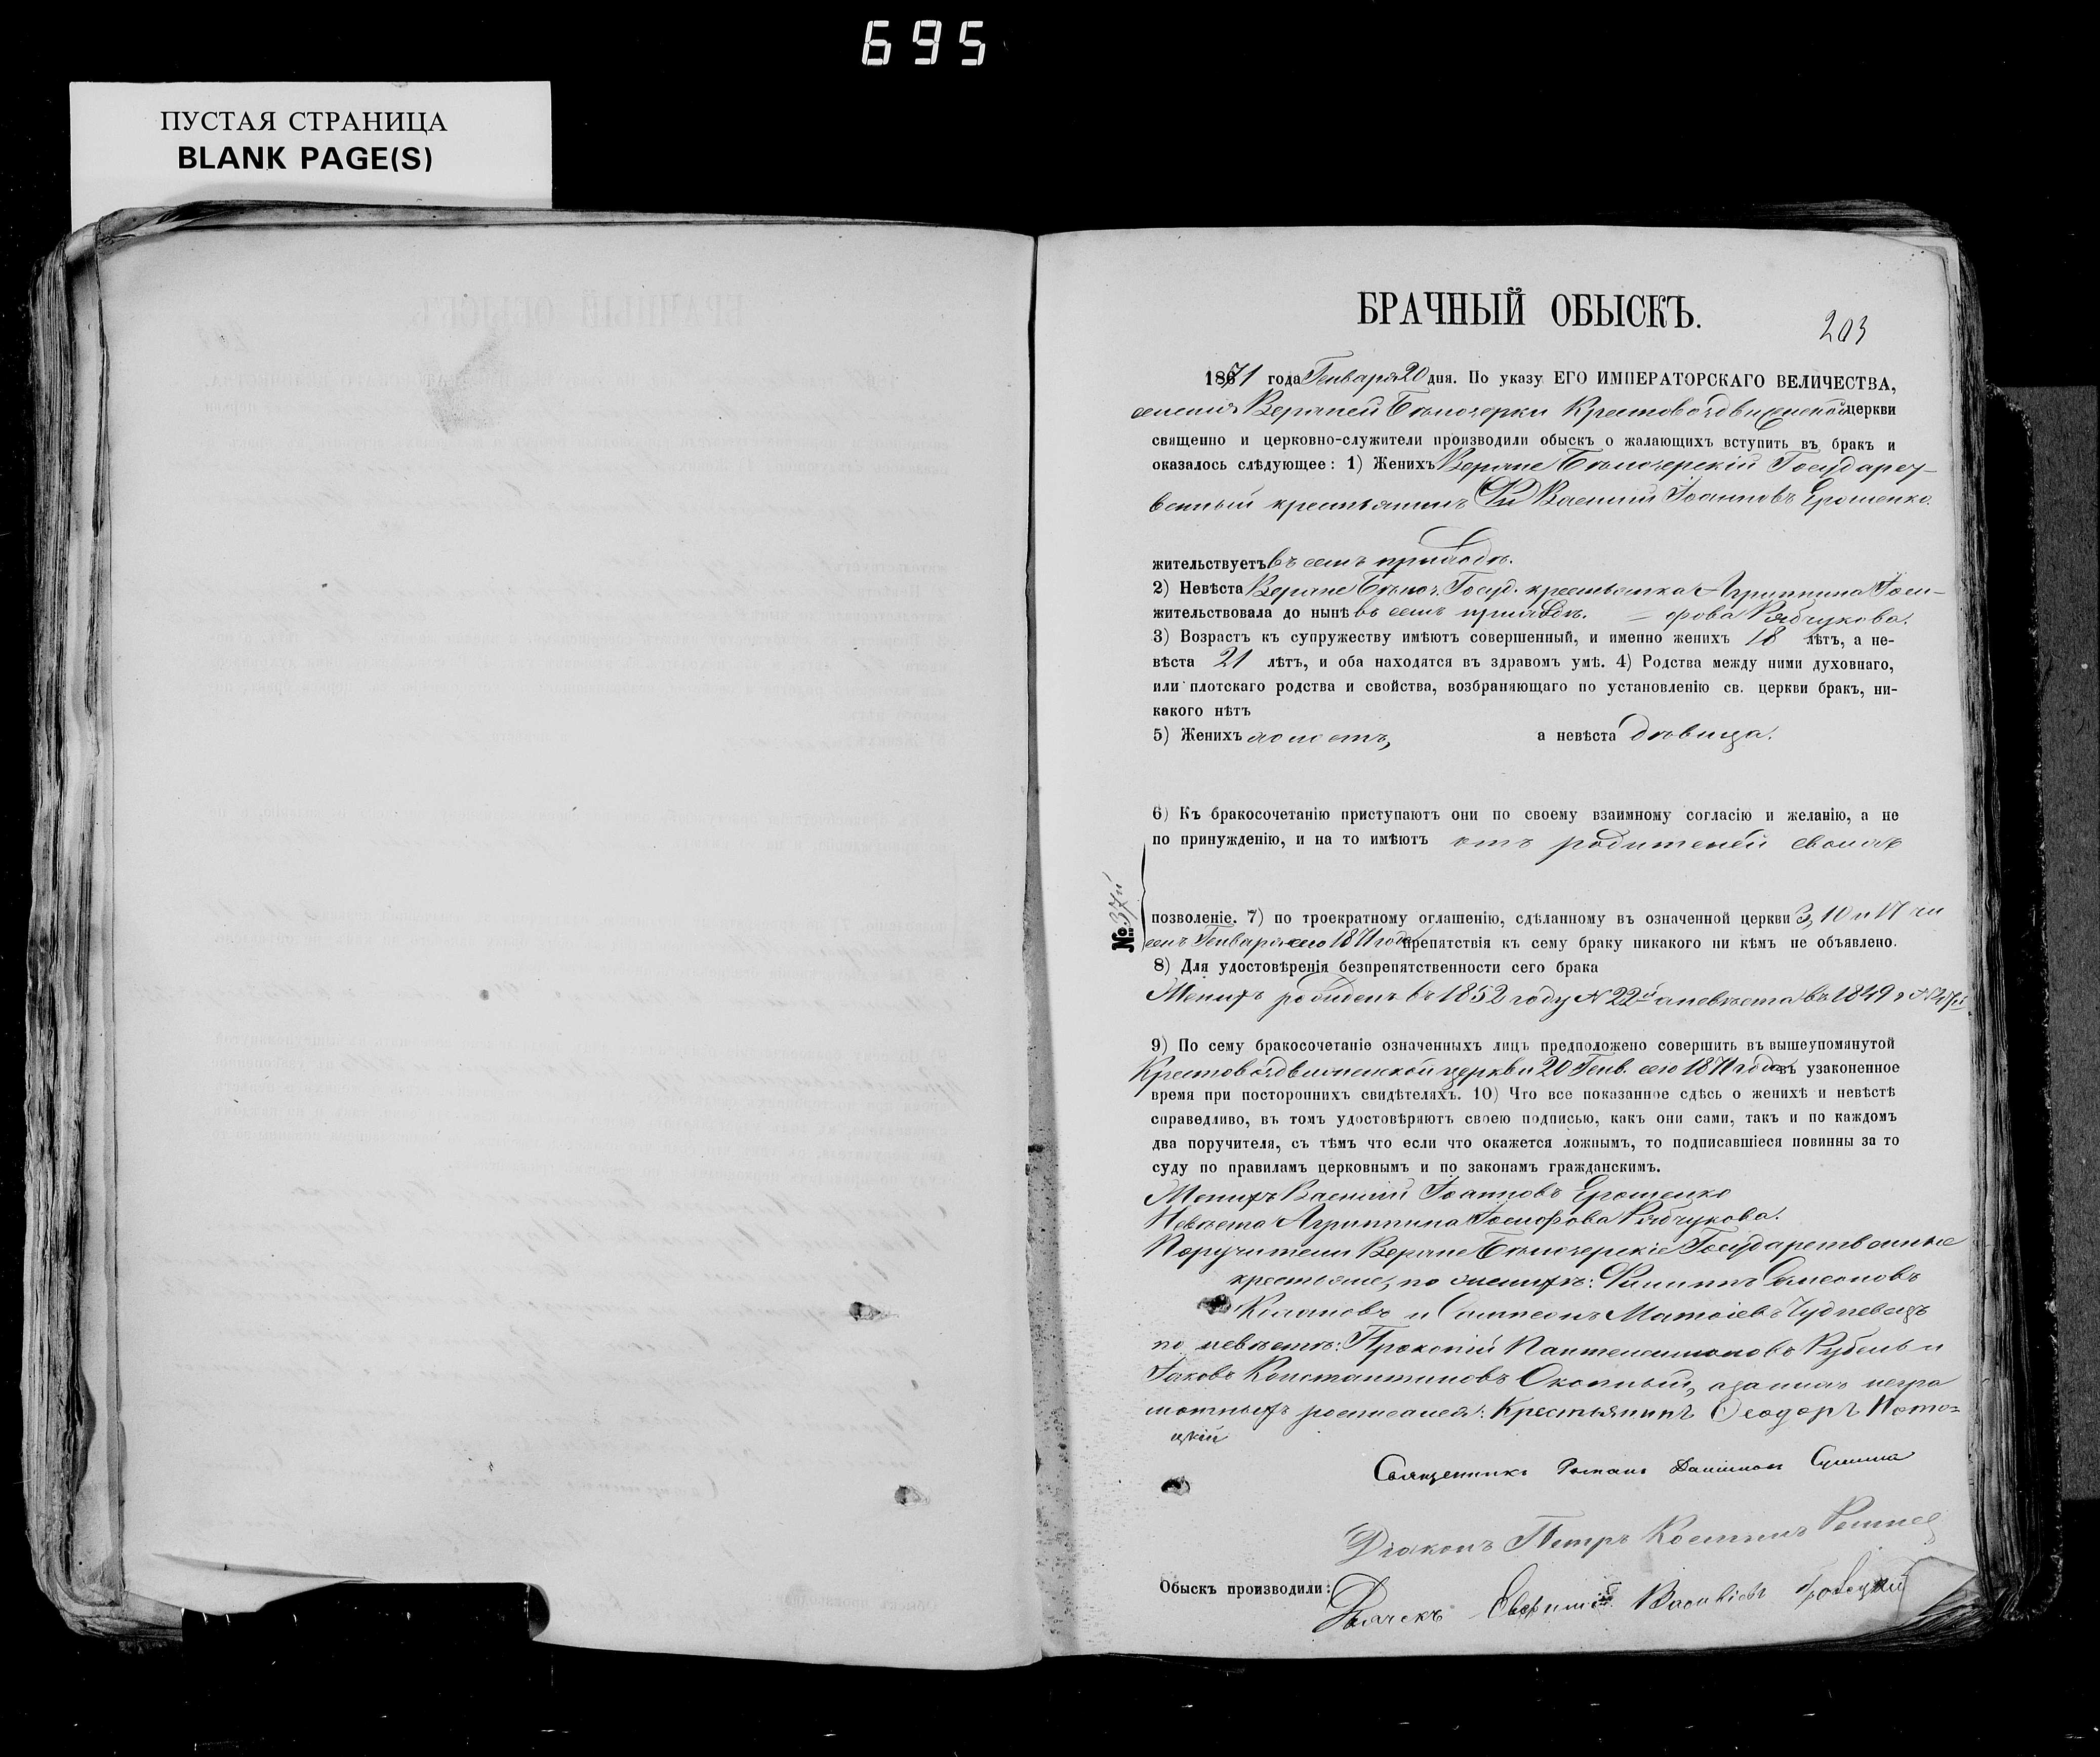 695
ПУСТАЯ СТРАНИЦА
BLANK PAGE(S)
БРАЧНЫЙ ОБЫСКЪ.
203
1871 года Генваря 20 дня. По указу ЕГО ИМПЕРАТОРСКАГО ВЕЛИЧЕСТВА,
селенія Верхней Бѣлозерки Крестовоздвиженской церкви
священно и церковно-служители производили обыскъ о жалающихъ вступить въ бракъ и
оказалось слѣдующее: 1) Женихъ Верхне Бѣлозерскій Государст-
венный крестьянинъ Василій Іоанновъ Ерошенко.
жительствуетъ въ семъ приходѣ.
2) Невѣста Верхне Бѣлоз. Госуд. крестьянка Агриппина Іоси-
жительствовала до нынѣ въ семъ приходѣ. = фова Рябчукова.
3) Возрастъ къ супружеству имѣютъ совершенный, и именно женихъ 18 лѣтъ, а не-
вѣста 21 лѣтъ, и оба находятся въ здравомъ умѣ. 4) Родства между ними духовнаго,
или плотскаго родства и свойства, возбраняющаго по установленію св. церкви бракъ, ни-
какого нѣтъ
5) Женихъ холостъ, а невѣста дѣвица.
6) Къ бракосочетанію приступаютъ они по своему взаимному согласію и желанію, а не
по принужденію, и на то имѣютъ отъ родителей своихъ
№ 37й
позволеніе. 7) по троекратному оглашенію, сдѣланному въ означенной церкви 3, 10 и 17 чи
селъ Генваря сего 1871 года препятствія къ сему браку никакого ни кѣмъ не объявлено.
8) Для удостовѣренія безпрепятственности сего брака
Женихъ рожденъ въ 1852 году № 22й а невѣста въ 1849 г
9) По сему бракосочетаніе означенныхъ лицъ предположено совершить въ вышеупомянутой
Крестовоздвиженской церкви 20 Генв. сего 1871 года въ узаконенное
время при постороннихъ свидѣтеляхъ. 10) Что все показанное сдѣсь о женихѣ и невѣстѣ
справедливо, въ томъ удостовѣряютъ своею подписью, какъ они сами, такъ и по каждомъ
два поручителя, съ тѣмъ что если что окажется ложнымъ, то подписавшіеся повинны за то
суду по правиламъ церковнымъ и по законамъ гражданскимъ.
Женихъ Василій Іоанновъ Ерошенко
Невѣста Агриппина Іосифова Рябчукова.
Поручители Верхне Бѣлозерскіе Государственные
крестьяне, по женихѣ: Филиппъ Симеоновъ
и Сампсонъ Матѳіевъ Чудневецъ
по невѣстѣ: Прокопій Пантелеимоновъ Рубель и
Іаковъ Константиновъ Окопный, а за нихъ негра
мотныхъ росписался: Крестьянинъ Ѳеодоръ Пото=
цкій
Священникъ Романъ Даніиловъ Сушина
Діаконъ Петръ Косминъ
Обыскъ производили:
Дьячекъ Евфимій